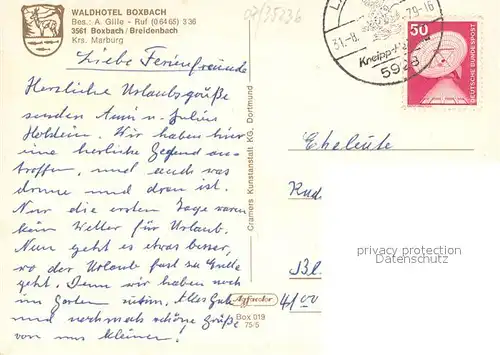 WALDHOTEL BOXBACH
Bes.: A. Gille - Ruf (0 64 65) 3 36
3561 Boxbach / Breidenbach
Krs. Marburg
07/35236
31.-8. 79-16
Kneipp-
5928
50
DEUTSCHE BUNDESPOST
Liebe Ferienfreunde
Herzliche Urlaubsgrüße
senden Änni u. Julius
Holstein. Wir haben hier
eine herrliche Gegend ange-
troffen, und auch was
drum und dran ist.
Nur die ersten Tage waren
kein Wetter für Urlaub.
Nun geht es etwas besser,
wo der Urlaub fast zu Ende
geht. Denn wir haben noch
im Garten Alles Gute
und nochmals schöne Grüße
von uns
Cramers Kunstanstalt KG, Dortmund
Eheleute
Rud
privacy protection
ansichtskarten-center.de
4600
Agfacolor
Box 019
75/5